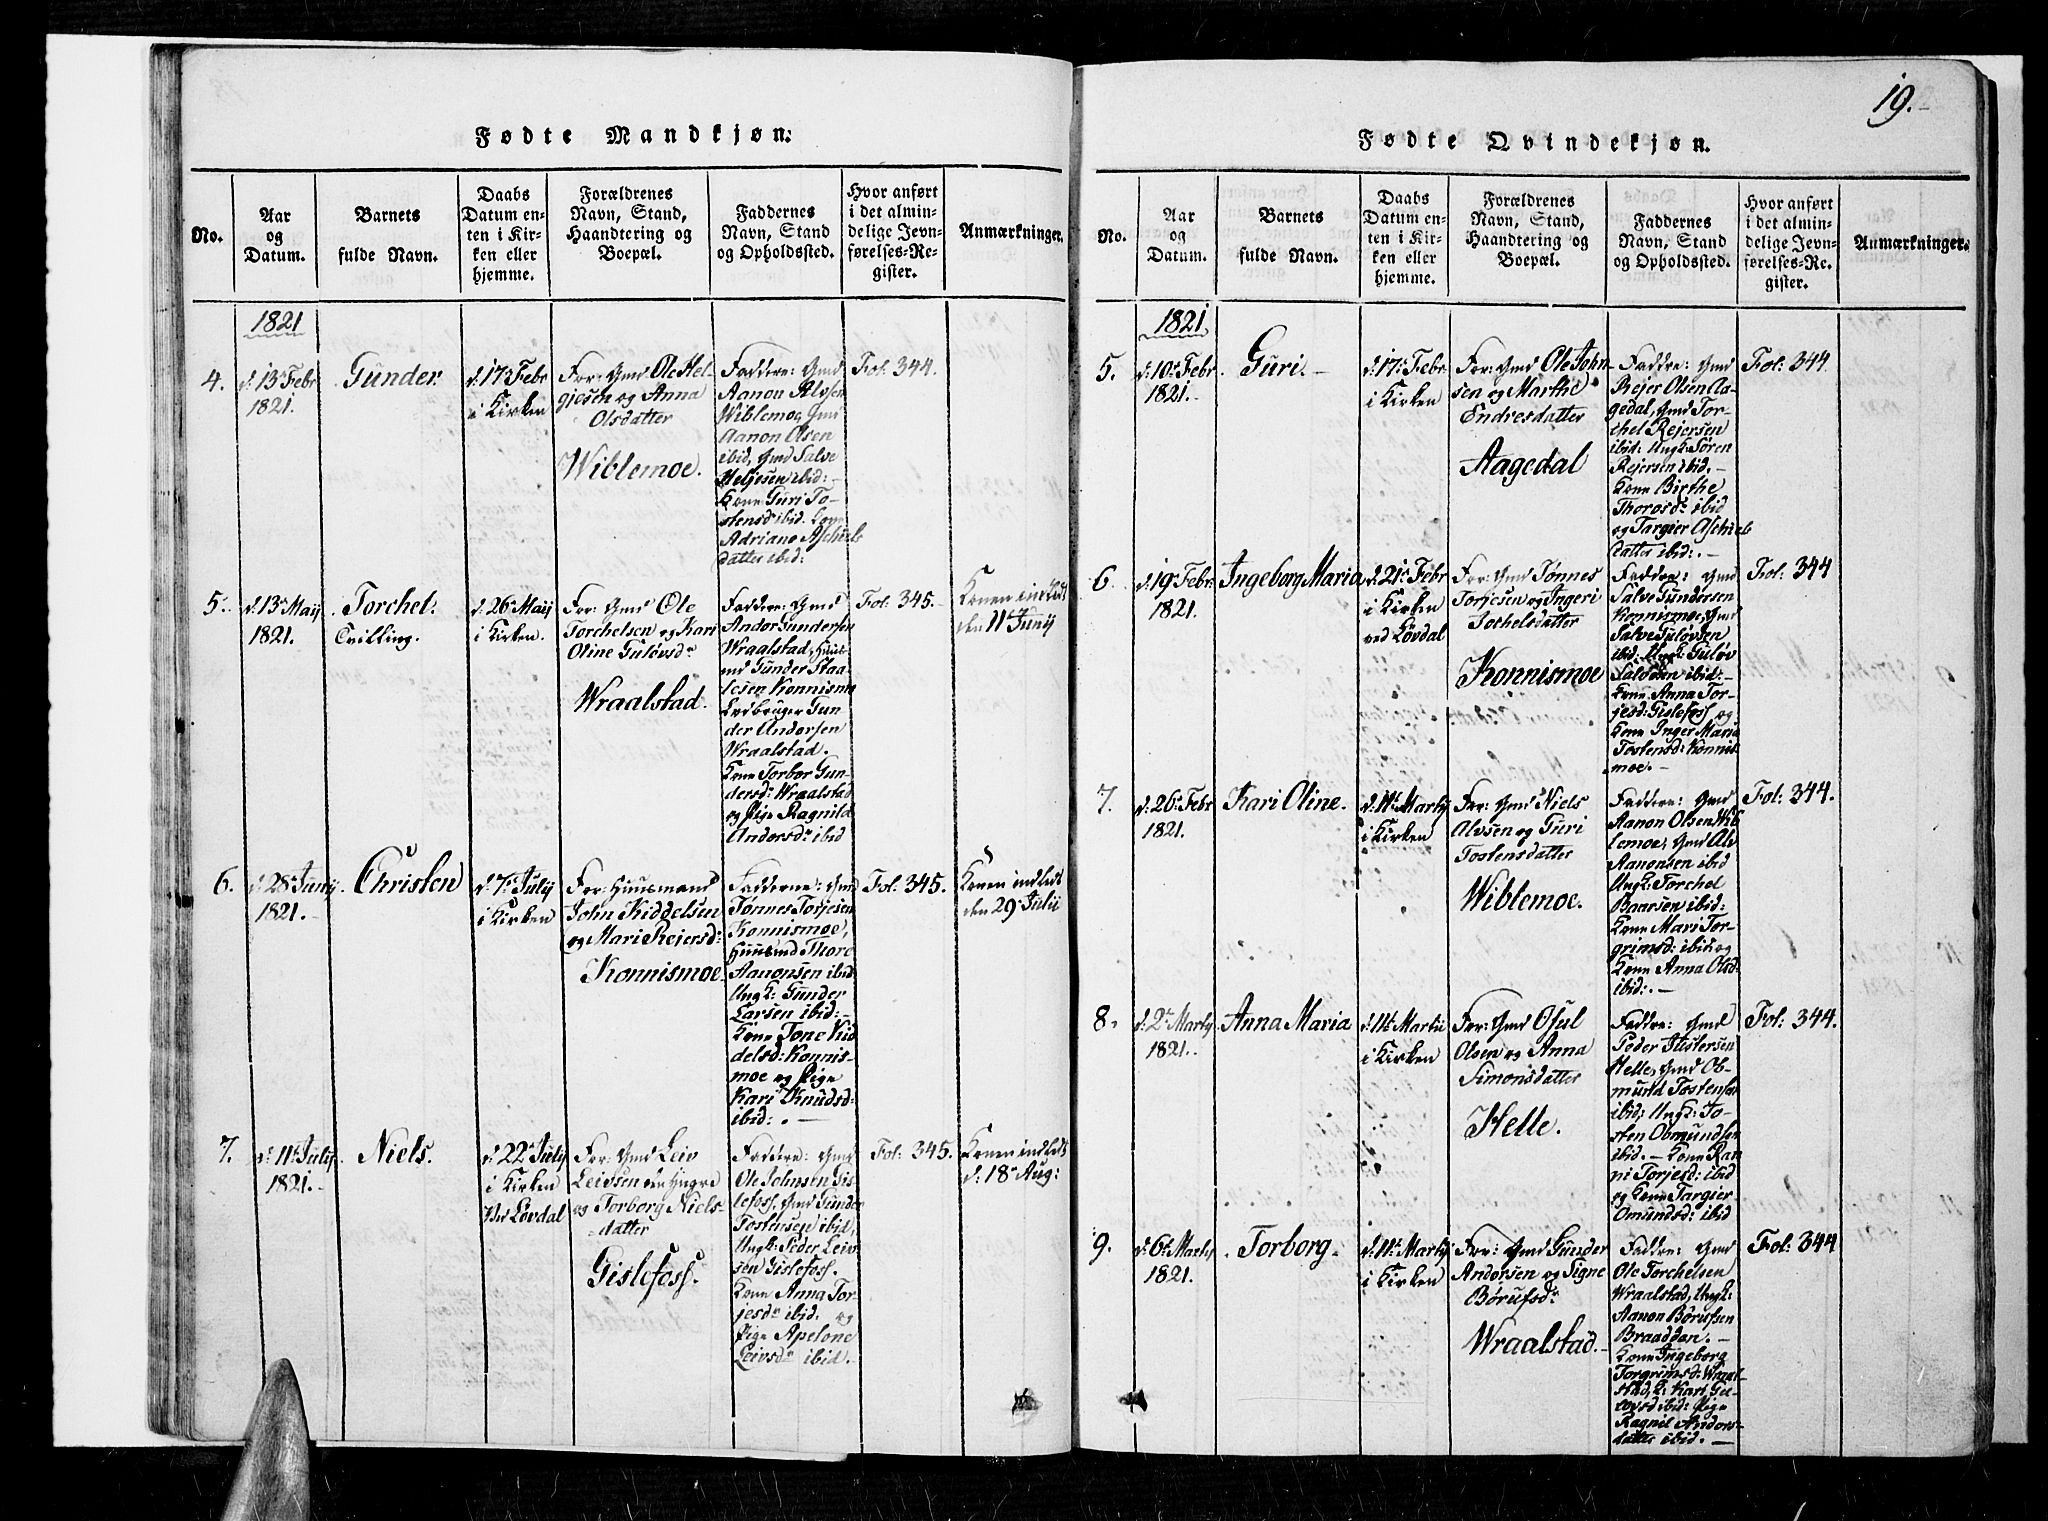 19.
Fødte Mandkjøn.
No.
Aar
og
Datum.
Barnets
fulde Navn.
Daabs
Datum en-
ten i Kir-
ken eller
hjemme.
Forældrenes
Navn, Stand,
Haandtering og
Boepæl.
Faddernes
Navn, Stand
og Opholdssted.
Hvor anført
i det almin-
delige Jevn-
førelses-Re-
gister.
Anmærkninger.
1821
4.
d: 13de Febr
1821.
Gunder.
d: 17de Febr
i Kirken
For: Gmd Ole Hel-
gjesen og Anna
Olsdatter
Wiblemoe.
Faddere: Gmd
Aanon Alvsen
Wiblemoe, Gmd
Aanon Olsen
ibid, Gmd Salve
Heljesen ibid:-
Kone Guri To-
stensdr ibid. Kone
Adriane Aschuls
datter ibid:
Fol: 344.
5.
d: 13de Maij
1821.
Torchel.
Tvilling.
d: 26de Maij
i Kirken.
For: Gmd Ole
Torchelsen og Kari
Oline Guløvsdr
Wraalstad.
Faddere: Gmd
Andor Gundersen
Wraalstad, Huus-
md Gunder Staa-
lesen Konnismo
Ledbruger Gun
der Andorsen
Wraalstad.
Kone Torbor Gun-
dersd: Wraalstad
og Pige Ragnild
Andorsdr ibid
Fol: 345.
Konen indledt
den 11te Junij
6.
d: 28de Junij
1821.
Christen
d: 7de Julij
i Kirken
For: Huusmand
John Kiddelsen
og Mari Reiersd:
Konnismoe.
Fadderne: Gmd
Tønnes Torjesen
Konnismoe,
Huusmd Thore
Aanonsen ibid
Ungk: Gunder
Larsen ibid:-
Kone Tone Kid
delsd: Konnis-
moe og Pige
Kari Knudsd:
ibid:. -
Fol: 345.
Konen indledt
den 29de Julii
7.
d: 11te Julij
1821. -
Niels.
d: 22de Julij
i Kirken
ved Løvdal
For: Gmd Leiv
Leivsen den Yngre
og Torborg Niels-
datter
Gislefoss.
Faddere: Gmd
Ole Johnsen Gis-
lefoss, Gmd Gunder
Tostensen ibid,
Ungk: Peder Leiv-
sen Gislefoss.
Kone Anna Tor-
jesdr ibid. og
Pige Apelone
Leivsdr ibid. -
Fol: 345.
Konen indledt
d: 18de Aug:
Fødte Qvindekjøn.
No.
Aar
og
Datum.
Barnets
fulde Navn.
Daabs
Datum en-
ten i Kir-
ken eller
hjemme.
Forældrenes
Navn, Stand,
Haandtering og
Boepæl.
Faddernes
Navn, Stand
og Opholdssted.
Hvor anført
i det almin-
delige Jevn-
førelses-Re-
gister.
Anmærkninger.
1821
5.
d: 10de Febr
1821.
Guri. -
d: 17de Febr
i Kirken
For: Gmd Ole John
sen og Marthe
Endresdatter
Aagedal
Faddre: Gmd
Rejer Olsen Aa-
gedal, Gmd Tor-
chel Rejersen
ibid: Ungk: Søren
Rejersen ibid. -
Kone Birthe
Thorosdr ibid
og Targier Aschuls
datter ibid:. -
Fol: 344
6
d: 19de Febr
1821.
Ingeborg Maria
d: 21de Febr
i Kirken
ved Løvdal
For: Gmd Tønnes
Torjesen og Ingeri
Jochelsdatter
Konnismoe
Faddre: Gmd
Salve Gundersen
Konnismoe, Gmd
Salve Guløvsen
ibid: Ungk: Guløv
Salvesen ibid:-
Kone Anna Tor-
jesd: Gislefoss og
Kone Inger Maria
Tostensd: Konnis
moe. -
Fol: 344
7.
d: 26de Febr
1821.
Kari Oline.
d: 11te Martij
i Kirken
For: Gmd Niels
Alvsen og Guri
Tostensdatter
Wiblemoe.
Faddere: Gmd
Aanon Olsen Wib
lemoe, Gmd Alv
Aanonsen ibid
Ungk: Torchel
Baarsen ibid:
Kone Mari Tor-
grimsd: ibid og
Kone Anna Olsd:
ibid:. -
Fol: 344.
8.
d: 2den Martij
1821.
Anna Maria
d: 11te Martii
i Kirken
For: Gmd Osul
Olsen og Anna
Simonsdatter
Helle.
Faddre: Gmd
Peder Gustersen
Helle, Gmd Ob-
mund Tostensen
ibid: Ungk: To-
sten Obmundsen
ibid. - Kone Ran
ni Torjesd: ibid
og Kone Targier
Omundsd: ibid
Fol: 344.
9.
d: 6te Martij
1821.
Torborg.
d: 11te Martij
i Kirken
For: Gmd Gunder
Andorsen og Signe
Børufsdr
Wraalstad. -
Faddre: Gmd
Ole Torchelsen
Wraalstad, Ungk:
Aanon Børufsen
Braaddan. -
Kone Ingeborg
Torgrimsd: Wraal-
stad, K: Kari Gu-
løvsd ibid: Pige
Ragnil Andors-
datter ibid. -
Fol: 344